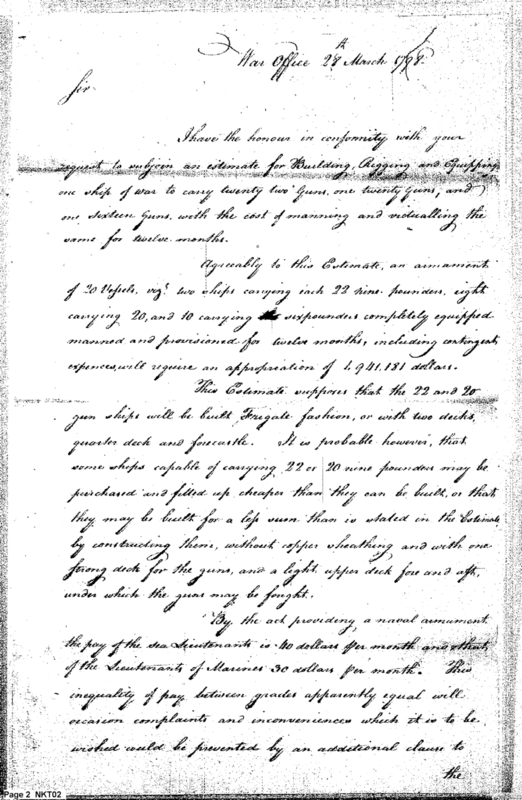 War Office 28th March 1798.
Sir
I have the honour in conformity with your
request to subjoin an estimate for Building, Rigging and Equipping
one ship of war to carry twenty two Guns, one twenty Guns, and
one sixteen Guns, with the cost of manning and victualling the
same for twelve months.
Agreeably to this Estimate, an armament
of 20 Vessels, vizt. two ships carrying each 22 nine pounders, eight
carrying 20, and 10 carrying sixpounders completely equipped
manned and provisioned for twelve months, including contingent
expences, will require an appropriation of 1,941,181 dollars.
This Estimate supposes that the 22 and 20
gun ships will be built Frigate fashion, or with two decks,
quarter deck and forecastle. It is probable however, that
some ships capable of carrying 22 or 20 nine pounders may be
purchased and fitted up cheaper than they can be built, or that
they may be built for a less sum than is stated in the Estimate
by constructing them, without copper sheathing and with one
strong deck for the guns, and a light upper deck fore and aft,
under which the guns may be fought.
By the act providing a naval armament
the pay of the sea Lieutenants is 40 dollars per month and that
of the Lieutenants of Marines 30 dollars per month. This
inequality of pay between grades apparently equal will
occasion complaints and inconveniences which it is to be
wished could be prevented by an additional clause to
the
Page 2 NKT02